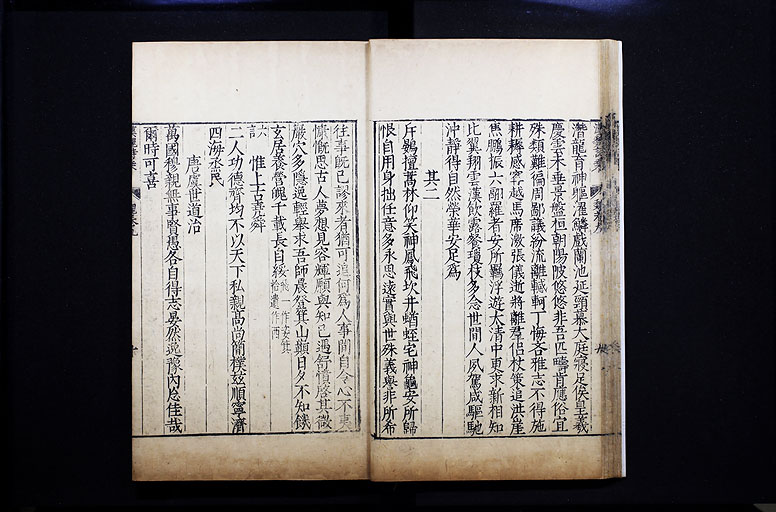 潛龍育神軀濯鱗戲蘭池延頸慕大庭寢足俟皇羲
慶雲未垂景盤桓朝陽陂悠悠非吾匹疇肯應俗宜
殊類難徧周鄙議紛流離轗軻丁悔吝雅志不得施
耕耨感甯越馬席激張儀逝將離羣侶杖策追洪崖
焦鵬振六翮羅者安所羈浮遊太清中更求新相知
比翼翔雲漢飲露餐瓊枝多念世間人夙駕咸驅馳
沖靜得自然榮華安足爲
其二
斥鷃擅蒿林仰笑神鳳飛坎井蝤蛭宅神龜安所歸
恨自用身拙任意多永思遠實與世殊義譽非所希
往事旣已謬來者猶可追何爲人事間自令心不夷
慷慨思古人夢想見容輝願與知己遇舒憤啓其微
巖穴多隱逸輕舉求吾師晨登箕山巔日夕不知饑
玄居養營魄千載長自綏 飛一作安箕
拾遺作西
六言 惟上古堯舜
二人功德齊均不以天下私親高尚簡樸玆順寧濟
四海烝民
唐虞世道治
萬國穆親無事賢愚各自得志晏然逸豫內忘佳哉
爾時可喜